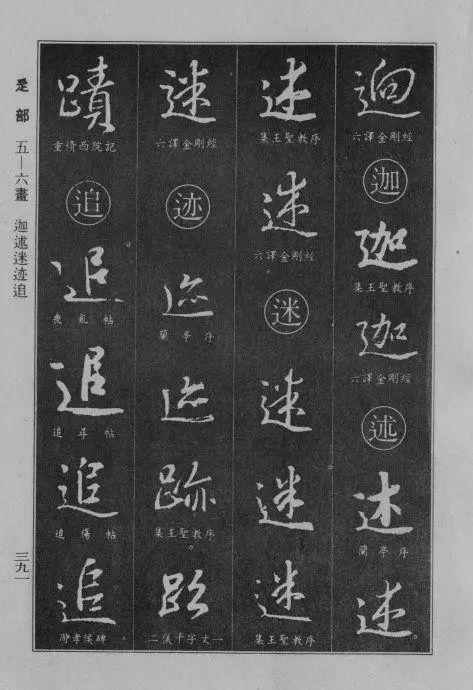 迥
六譯金剛經
迦
迦
集王聖教序
迦
六譯金剛經
述
述
蘭亭序
述
述
集王聖教序
述
六譯金剛經
迷
迷
迷
迷
集王聖教序
迷
六譯金剛經
迹
迹
蘭亭序
迹
跡
集王聖教序
跡
二儀千字文一
蹟
重脩西院記
追
追
喪亂帖
追
追尋帖
追
追傷帖
追
孝侯碑
辵部 五—六畫 迦述迷迹追
三九一